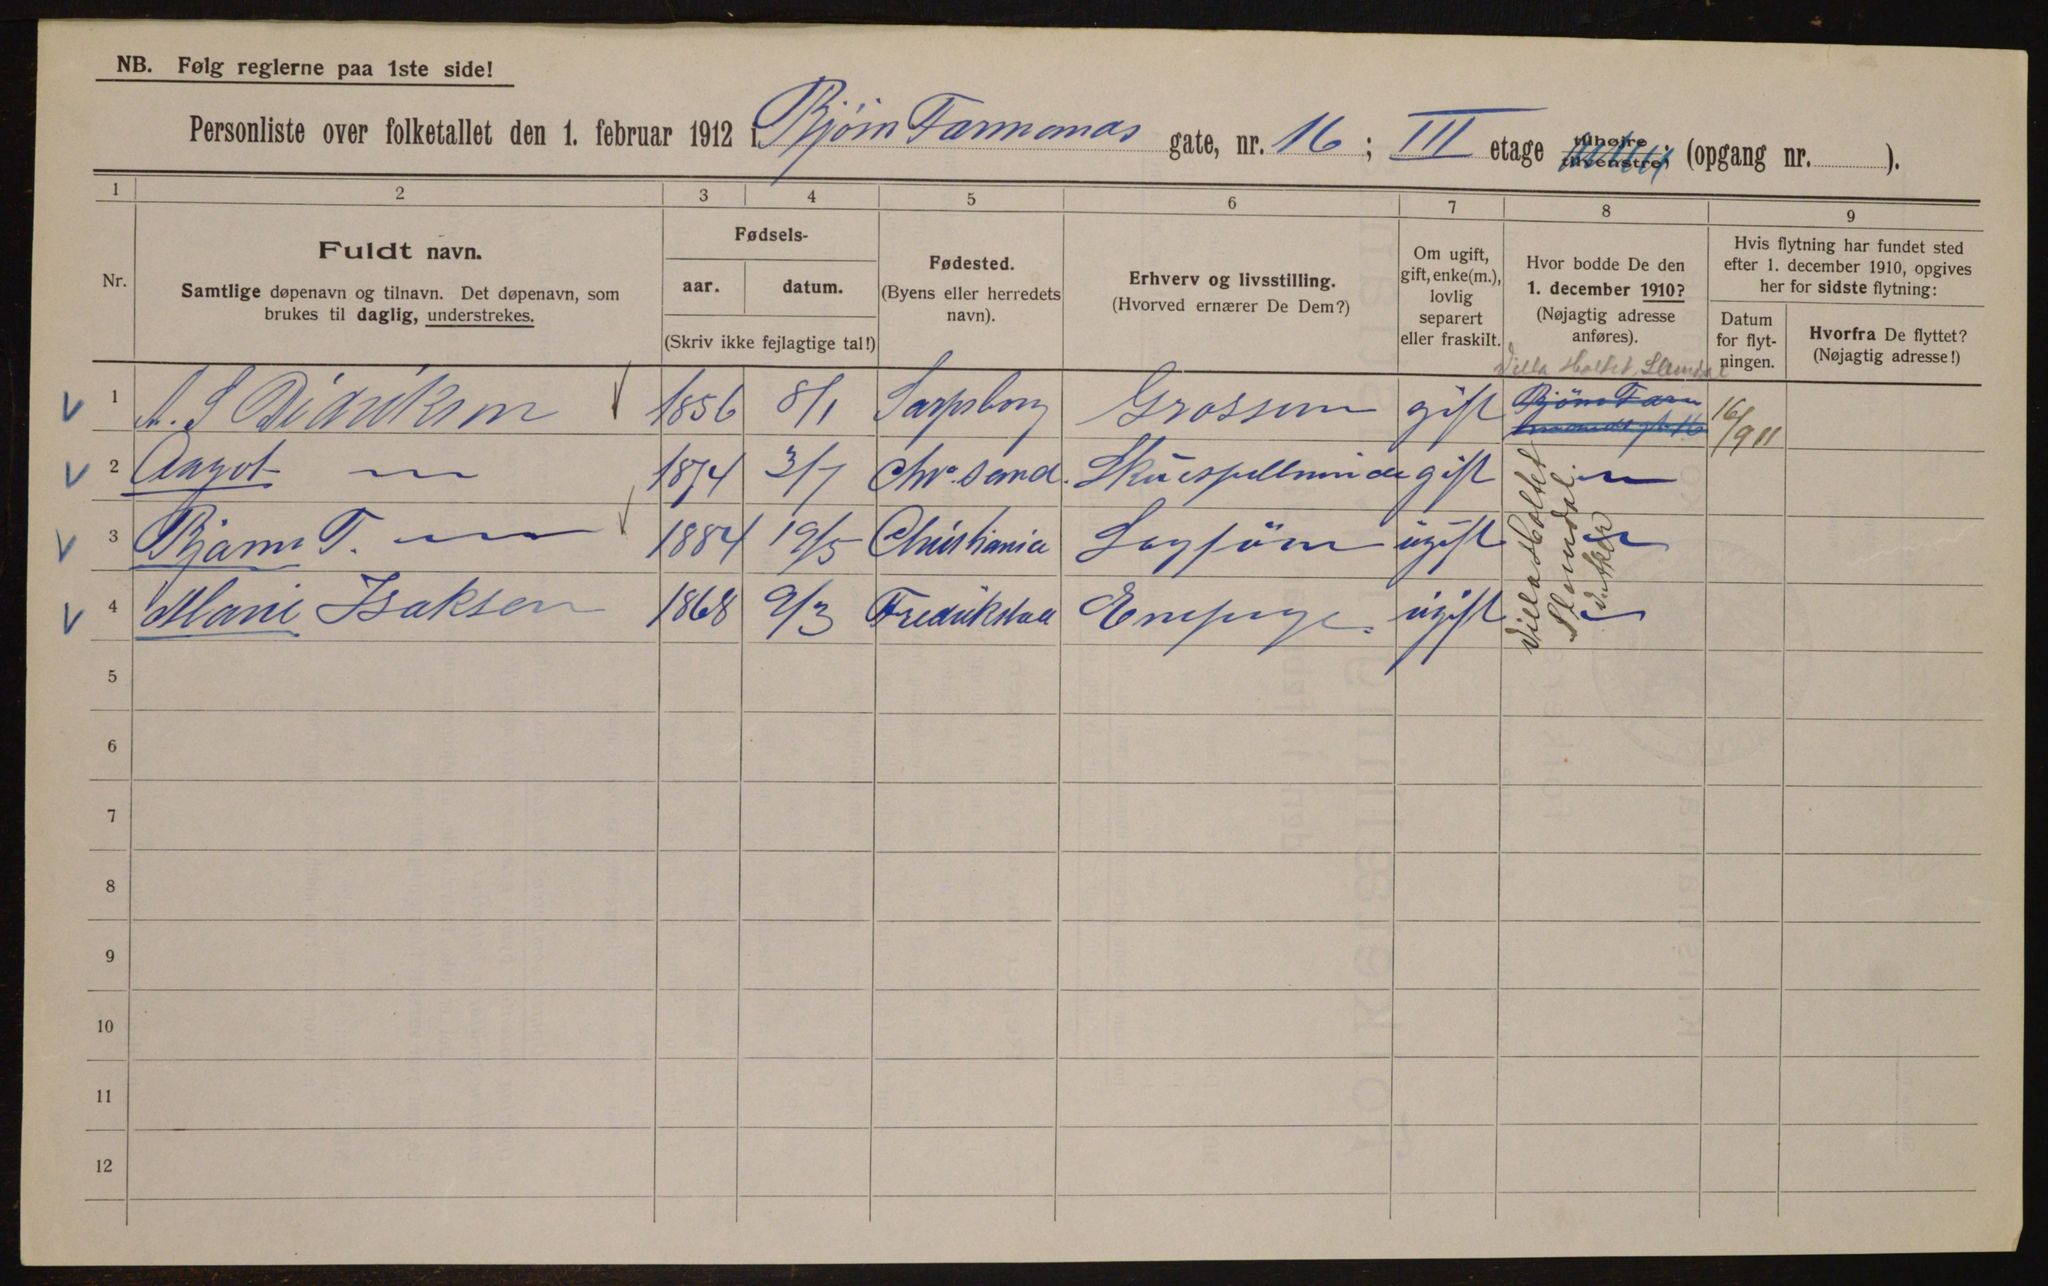 NB. Følg reglerne paa 1ste side!
Personliste over folketallet den 1. februar 1912 i Bjørn Farmanns gate, nr. 16 ; III etage tilhøire tilvenstre, (opgang nr. ).
1 2 3 4 5 6 7 8 9
Nr.
Fuldt navn.
Samtlige døpenavn og tilnavn. Det døpenavn, som
brukes til daglig, understrekes.
Fødsels-
aar. datum.
(Skriv ikke fejlagtige tal!)
Fødested.
(Byens eller herredets
navn).
Erhverv og livsstilling.
(Hvorved ernærer De Dem?)
Om ugift,
gift, enke(m.),
lovlig
separert
eller fraskilt.
Hvor bodde De den
1. december 1910?
(Nøjagtig adresse
anføres).
Hvis flytning har fundet sted
efter 1. december 1910, opgives
her for sidste flytning:
Datum
for flyt-
ningen.
Hvorfra De flyttet?
(Nøjagtig adresse!)
Villa Holtet, Slemdal
1 A. S. Didriksen 1856 8/1 Sarpsborg Grosserer gift Bjørn Farmanns gt. 16 16/9 11
2 Aagot — 1874 3/7 Chr.sand. Skuespillerinde gift —
3 Bjarne T. — 1884 19/5 Christiania ugift —
4 Marie Isaksen 1868 9/3 Fredrikstad ugift —
Villa Holtet
Slemdal
V. Aker
5
6
7
8
9
10
11
12